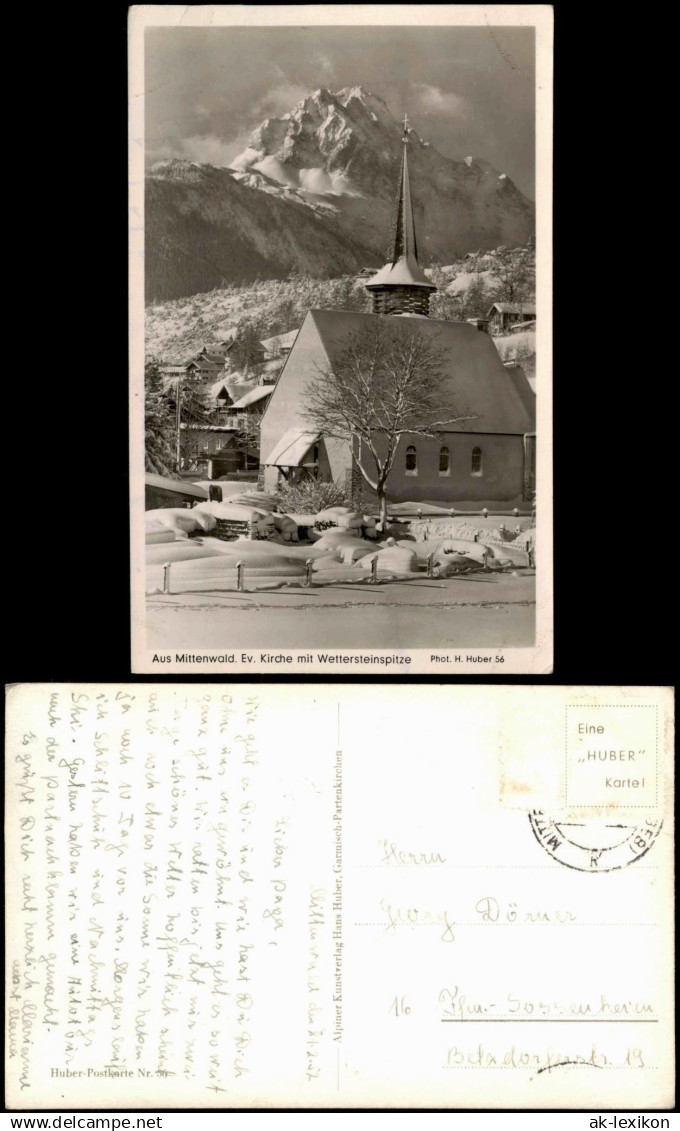 Aus Mittenwald. Ev. Kirche mit Wettersteinspitze Phot. H. Huber 56
Lieber Papa,
wie geht es Dir und wie hast Du Dich
ohne uns eingewöhnt. Uns geht es soweit
ganz gut. Wir hatten bis jetzt nur zwei
Tage schönes Wetter hoffentlich scheint
auch noch etwas die Sonne wir haben
ja noch 10 Tage vor uns. Morgens lauf
ich Schlittschuh und Nachmittags
Ski. Gestern haben wir eine Autotour
nach der Partnachklamm gemacht.
Es grüßt Dich recht herzlich Marianne
und Mama
Huber-Postkarte Nr. 56
Alpiner Kunstverlag Hans Huber, Garmisch-Partenkirchen
Eine
„HUBER"
Karte!
MITTE
Herrn
Georg Dörner
16 Ffm.-Sossenheim
19
ak-ansichtskarten.de
ak-lexikon